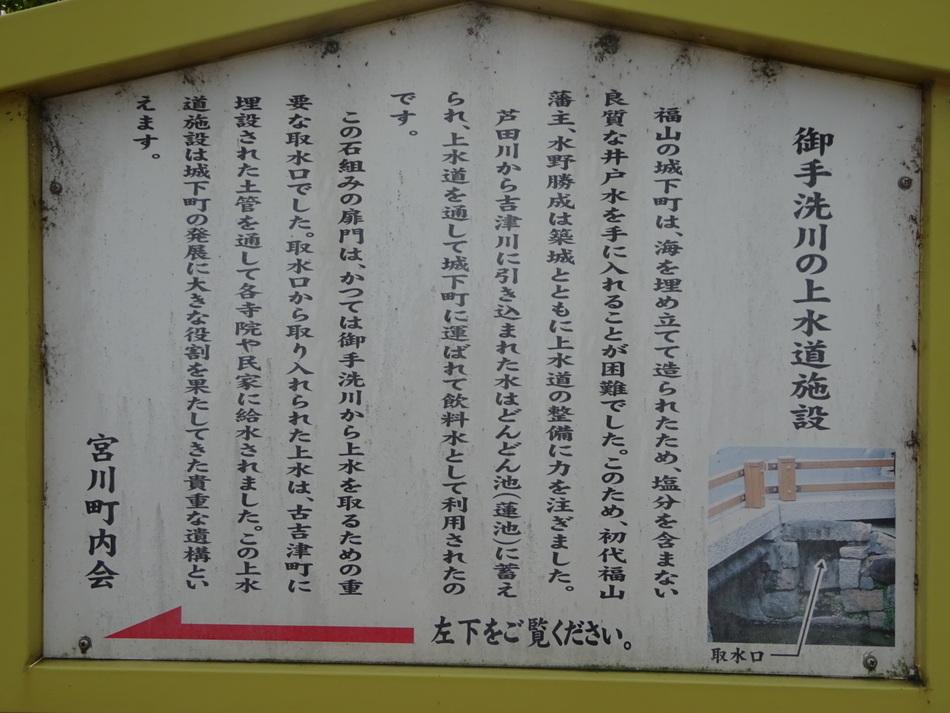 御手洗川の上水道施設
福山の城下町は、海を埋め立てて造られたため、塩分を含まない
良質な井戸水を手に入れることが困難でした。このため、初代福山
藩主、水野勝成は築城とともに上水道の整備に力を注ぎました。
芦田川から吉津川に引き込まれた水はどんどん池(蓮池)に蓄え
られ、上水道を通して城下町に運ばれて飲料水として利用されたの
です。
この石組みの扉門は、かつては御手洗川から上水を取るための重
要な取水口でした。取水口から取り入れられた上水は、古吉津町に
埋設された土管を通して各寺院や民家に給水されました。この上水
道施設は城下町の発展に大きな役割を果たしてきた貴重な遺構とい
えます。
宮川町内会
取水口
左下をご覧ください。